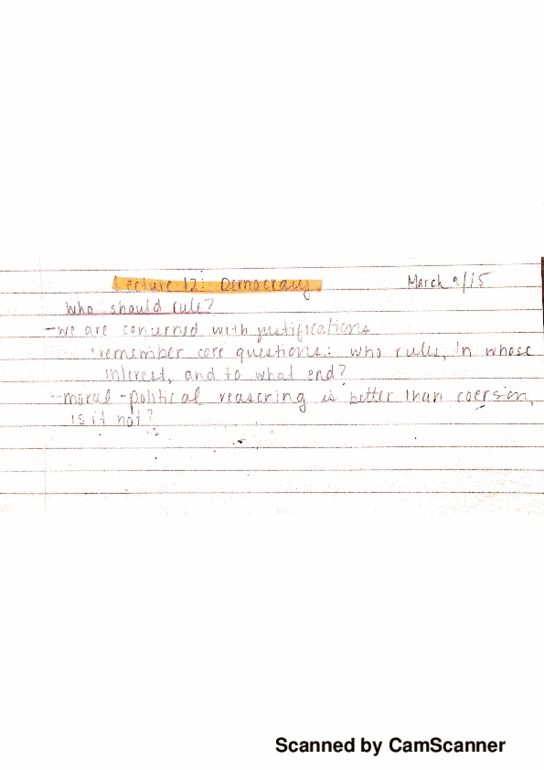 Lecture 12: Democracy March 9/15
Who should rule?
-we are concerned with justifications
•remember core questions: who rules, in whose
interest, and to what end?
-moral-political reasoning is better than coersion,
is it not?
Scanned by CamScanner